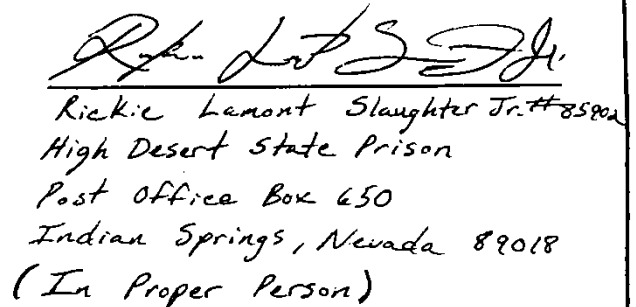 Rickie Lamont Slaughter Jr. #85902
High Desert State Prison
Post Office Box 650
Indian Springs, Nevada 89018
(In Proper Person)